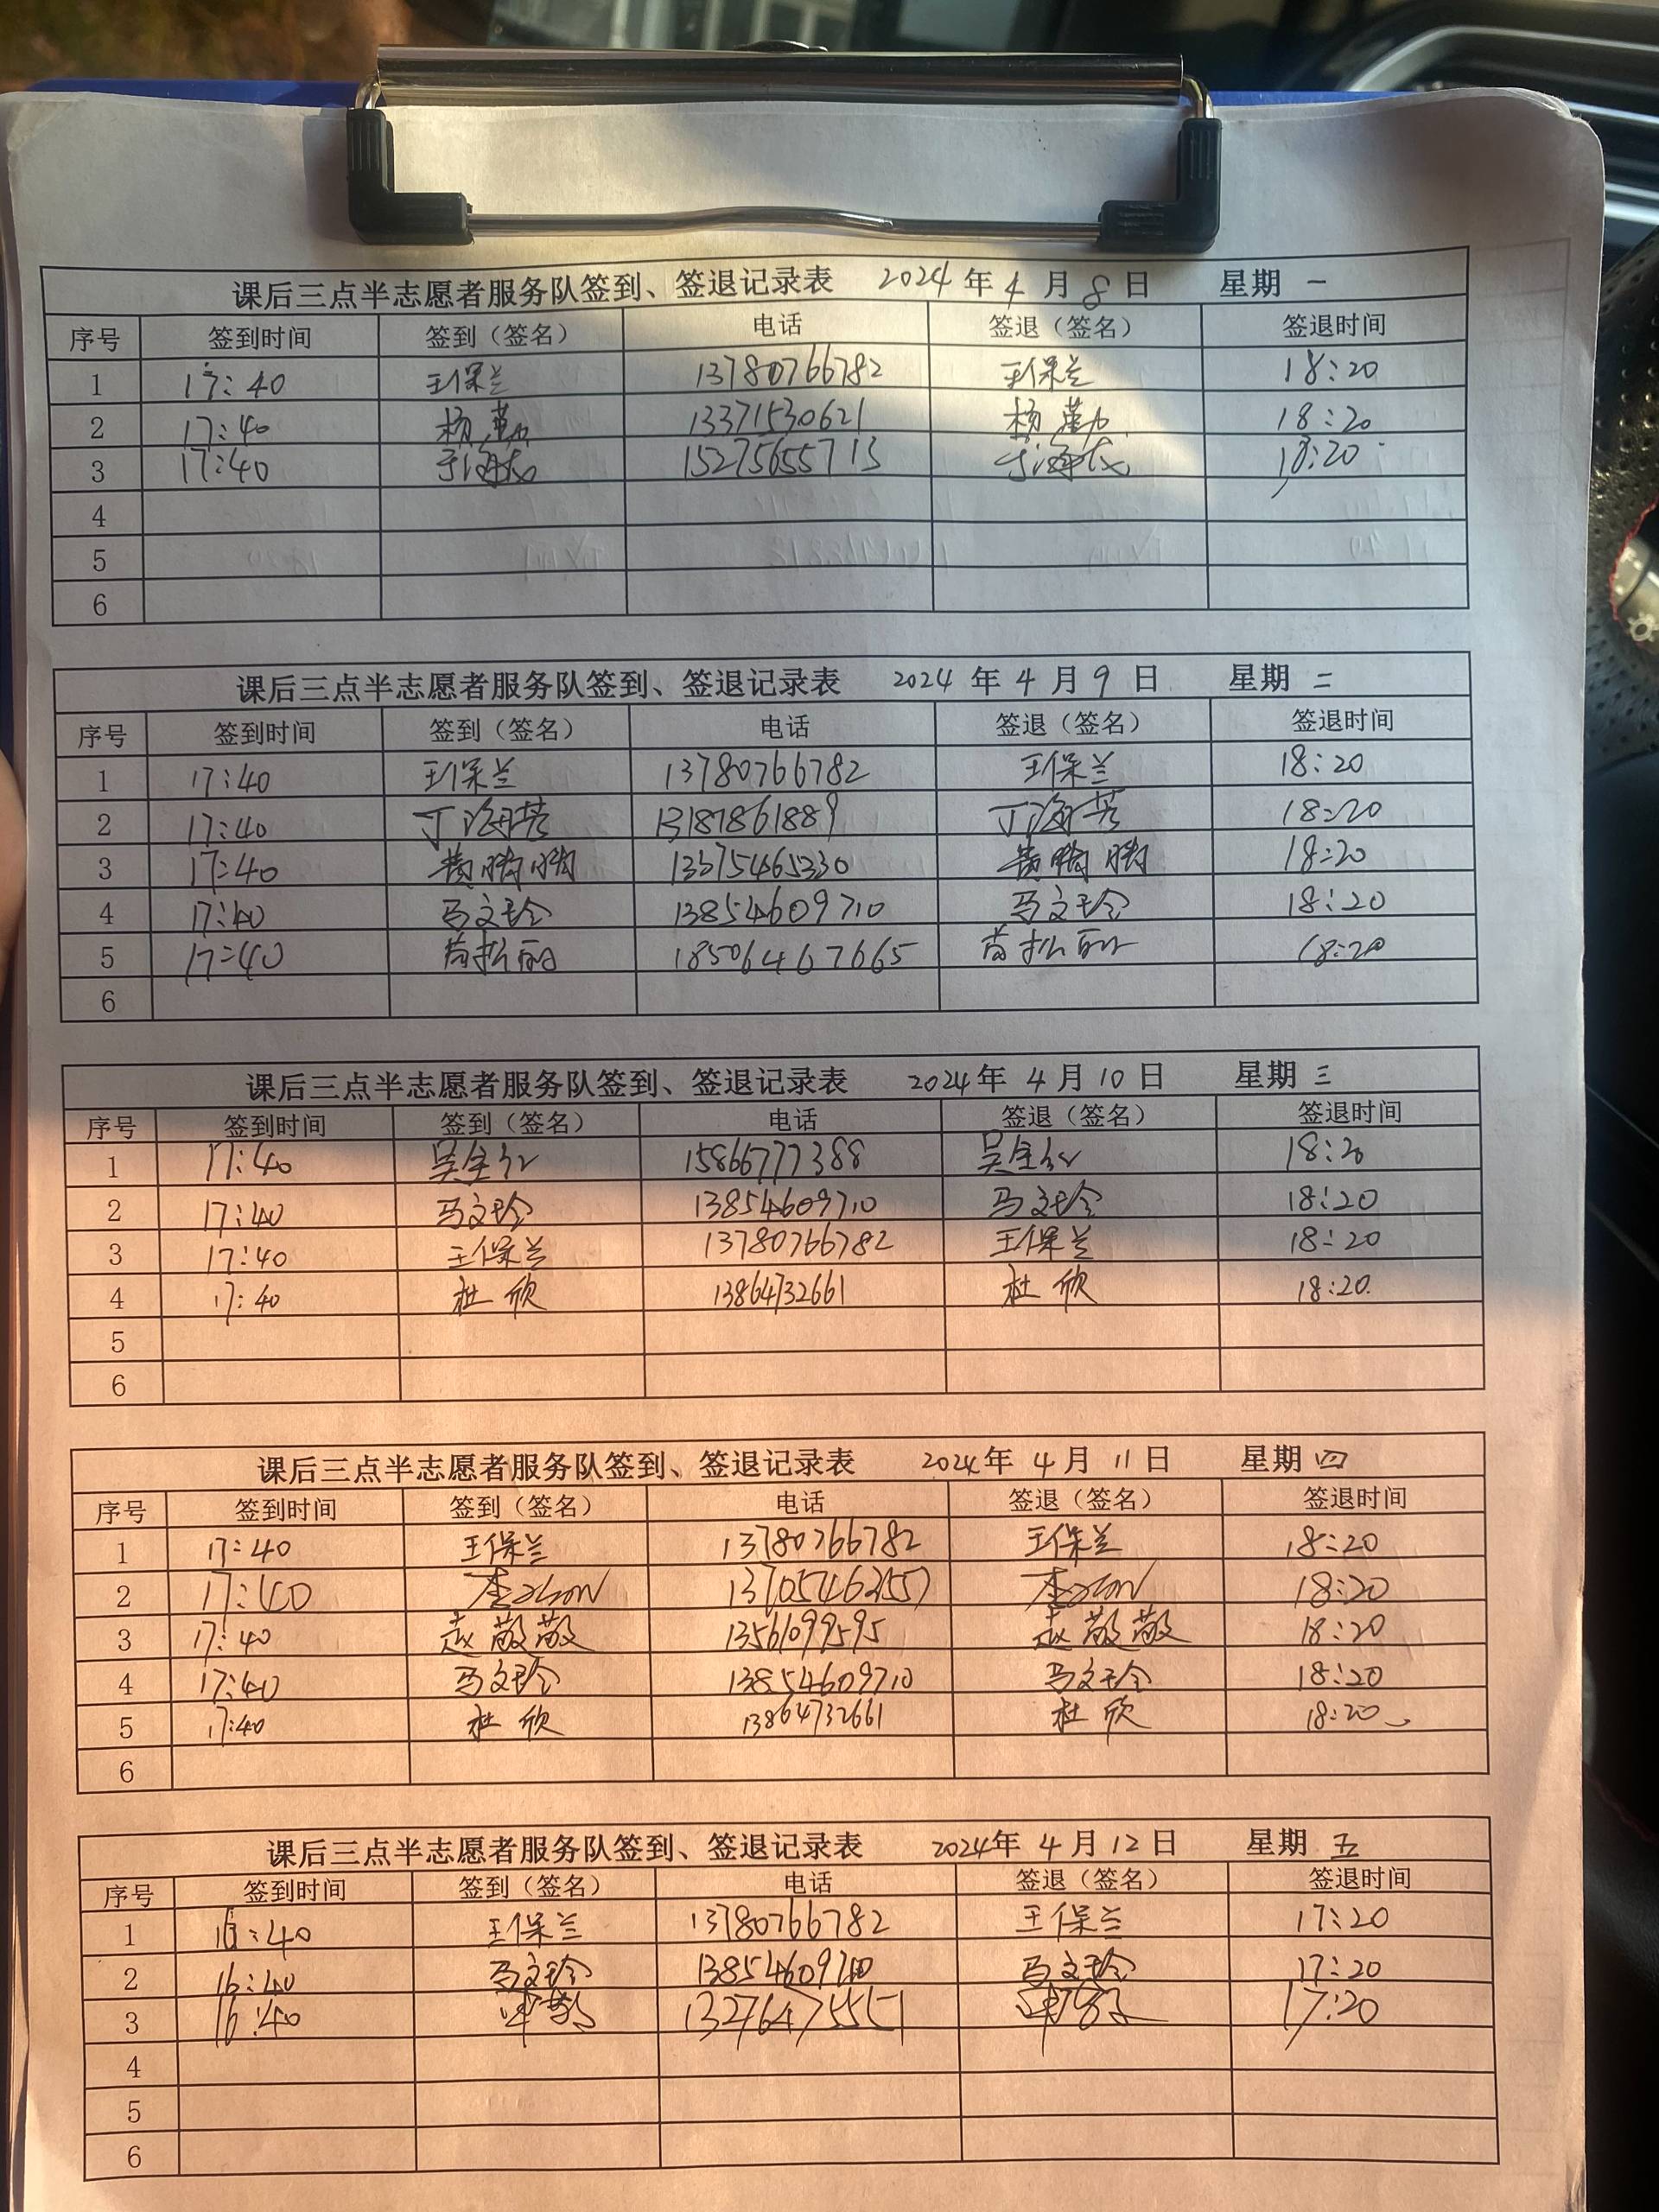 课后三点半志愿者服务队签到、签退记录表 2024年4月8日 星期一
序号 签到时间 签到（签名） 电话 签退（签名） 签退时间
1 17:40 王保兰 13780766782 王保兰 18:20
2 17:40 杨勤 13371530621 杨勤 18:20
3 17:40 15275655713 18:20
4
5
6
课后三点半志愿者服务队签到、签退记录表 2024年4月9日 星期二
序号 签到时间 签到（签名） 电话 签退（签名） 签退时间
1 17:40 王保兰 13780766782 王保兰 18:20
2 17:40 丁海芳 13187861889 丁海芳 18:20
3 17:40 黄腾腾 13375465330 黄腾腾 18:20
4 17:40 马文玲 13854609710 马文玲 18:20
5 17:40 苟松丽 18506467665 苟松丽 18:20
6
课后三点半志愿者服务队签到、签退记录表 2024年4月10日 星期三
序号 签到时间 签到（签名） 电话 签退（签名） 签退时间
1 17:40 吴全红 15866777388 吴全红 18:20
2 17:40 马文玲 13854609710 马文玲 18:20
3 17:40 王保兰 13780766782 王保兰 18:20
4 17:40 杜欣 13864732661 杜欣 18:20
5
6
课后三点半志愿者服务队签到、签退记录表 2024年4月11日 星期四
序号 签到时间 签到（签名） 电话 签退（签名） 签退时间
1 17:40 王保兰 13780766782 王保兰 18:20
2 17:40 18:20
3 17:40 赵敬敬 13561099595 赵敬敬 18:20
4 17:40 马文玲 13854609710 马文玲 18:20
5 17:40 杜欣 13864732661 杜欣 18:20
6
课后三点半志愿者服务队签到、签退记录表 2024年4月12日 星期五
序号 签到时间 签到（签名） 电话 签退（签名） 签退时间
1 16:40 王保兰 13780766782 王保兰 17:20
2 16:40 马文玲 13854609710 马文玲 17:20
3 16:40 13276475551 17:20
4
5
6